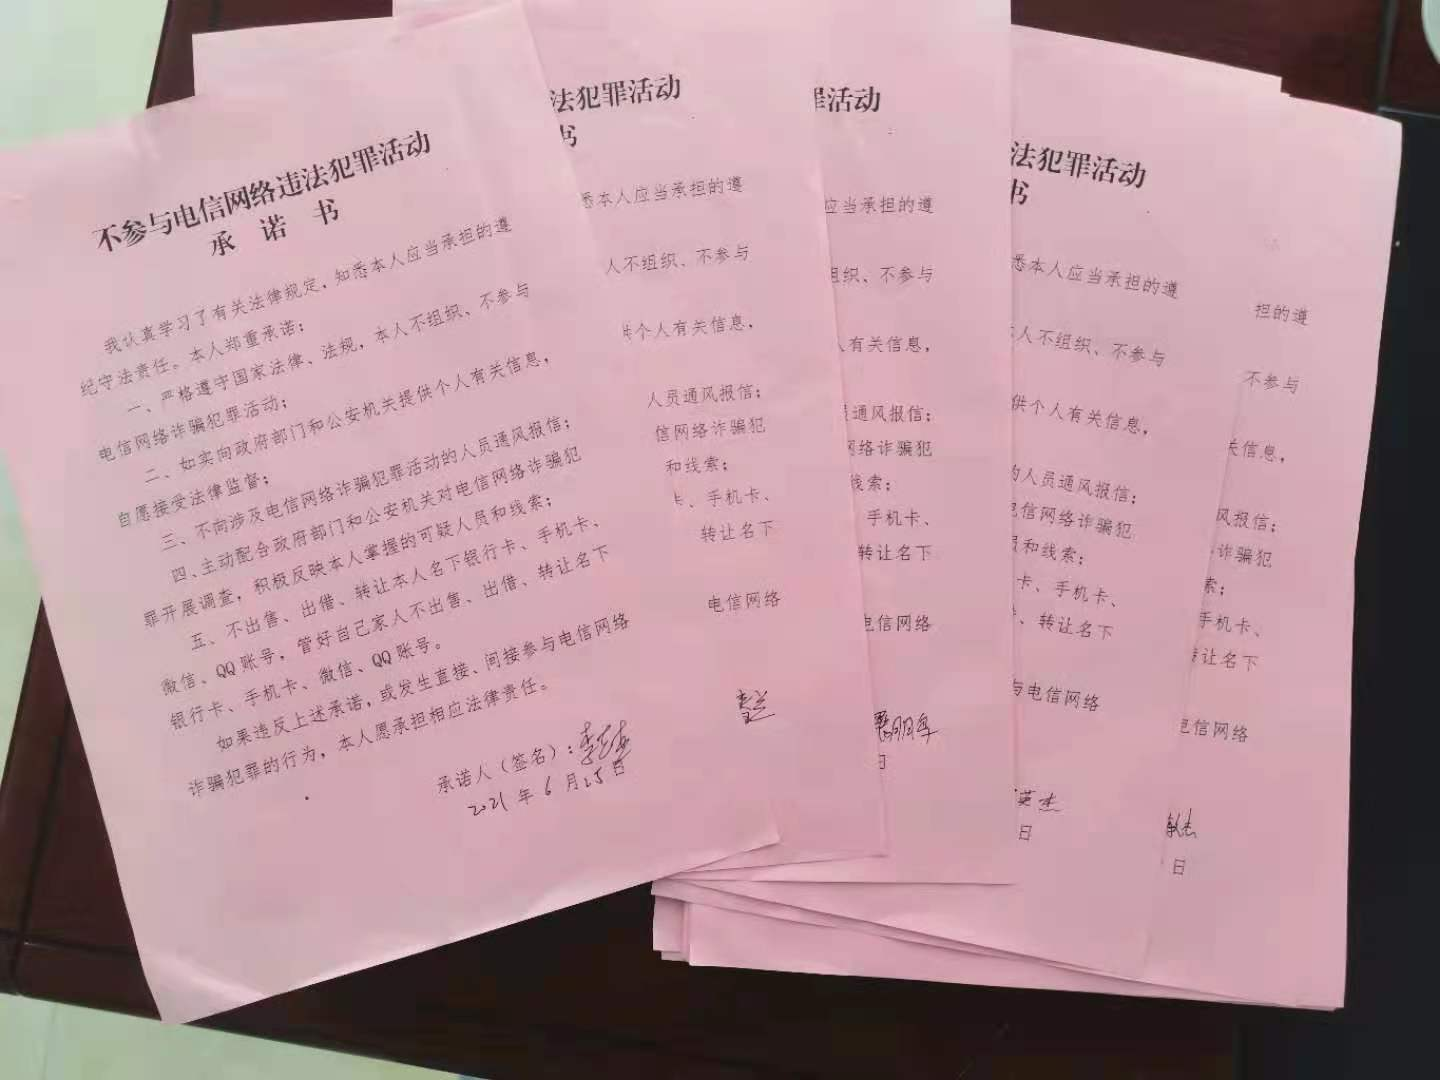 不参与电信网络违法犯罪活动
承诺书
我认真学习了有关法律规定，知悉本人应当承担的遵
纪守法责任。本人郑重承诺：
一、严格遵守国家法律、法规，本人不组织、不参与
电信网络诈骗犯罪活动；
二、如实向政府部门和公安机关提供个人有关信息，
自愿接受法律监督；
三、不向涉及电信网络诈骗犯罪活动的人员通风报信；
四、主动配合政府部门和公安机关对电信网络诈骗犯
罪开展调查，积极反映本人掌握的可疑人员和线索；
五、不出售、出借、转让本人名下银行卡、手机卡、
微信、QQ账号，管好自己家人不出售、出借、转让名下
银行卡、手机卡、微信、QQ账号。
如果违反上述承诺，或发生直接、间接参与电信网络
诈骗犯罪的行为，本人愿承担相应法律责任。
承诺人（签名）：
2021年6月25日
法犯罪活动
书
悉本人应当承担的遵
人不组织、不参与
供个人有关信息，
人员通风报信；
信网络诈骗犯
和线索；
卡、手机卡、
转让名下
电信网络
罪活动
应当承担的遵
组织、不参与
人有关信息，
员通风报信；
网络诈骗犯
线索；
手机卡、
转让名下
电信网络
日
法犯罪活动
书
悉本人应当承担的遵
本人不组织、不参与
供个人有关信息，
的人员通风报信；
电信网络诈骗犯
员和线索；
卡、手机卡、
、转让名下
与电信网络
英杰
日
担的遵
不参与
关信息，
风报信；
诈骗犯
索；
手机卡、
转让名下
电信网络
日